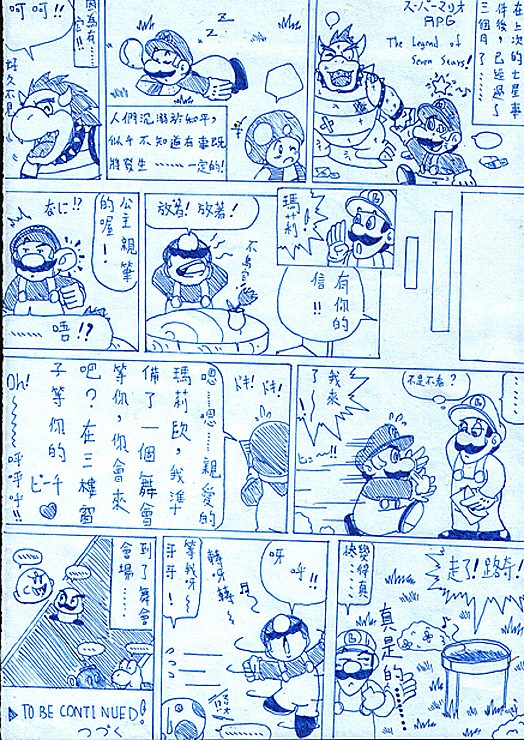 スーパーマリオ
RPG
The Legend of
Seven Stars!
在上次的七星事
件後，已經過了
三個月了……
Z
Z
人們沉溺於和平，
似乎不知道有事既
將發生……一定的！
因為有……
它!!
呵呵!!
好久不見
瑪莉
有你的
信!!
放著！放著！
公主親筆
的喔！
なに!?
……唔!?
……
不是不看？
我來
了……!!
ドキ！ドキ！
嗯…嗯…親愛的
瑪莉歐，我準
備了一個舞會
等你，你會來
吧？在三樓窗
子等你的
ピーチ
Oh!
呼呼呼!!
走了！路奇！
變得真
快……
真是的……
呀呼!!
轉呀轉～
等我呀～
哥哥！
到了舞會
會場……
TO BE CONTINUED!
つづく